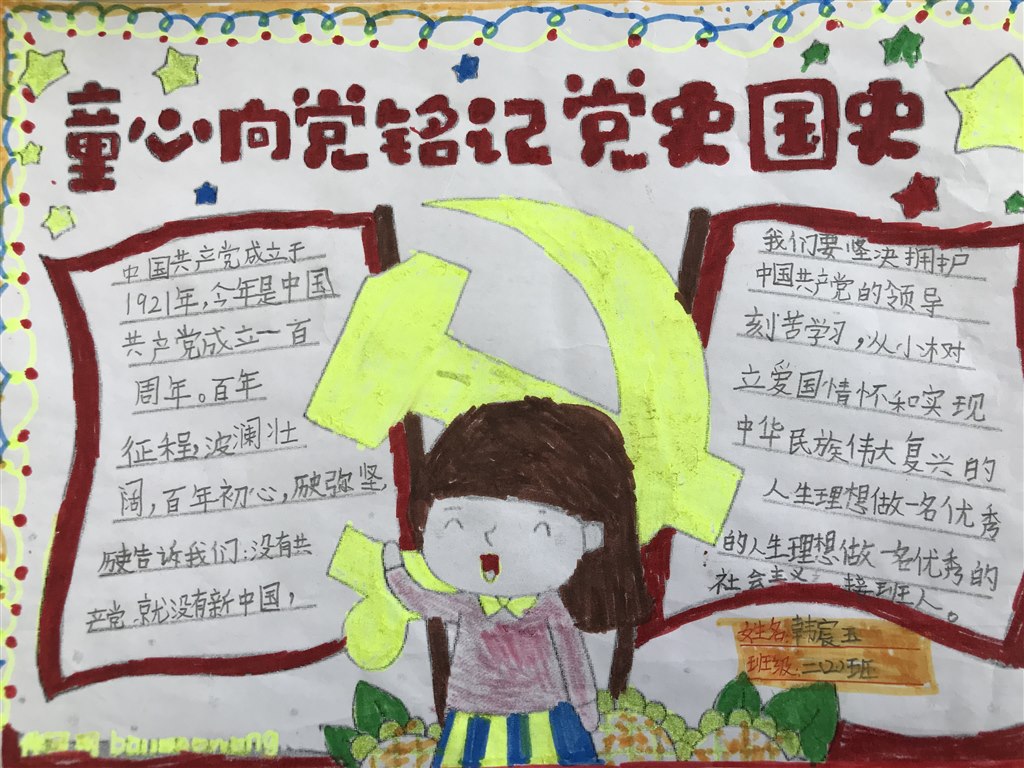 童心向党铭记党史国史
中国共产党成立于
1921年,今年是中国
共产党成立一百
周年。百年
征程,波澜壮
阔,百年初心,历史弥坚,
历史告诉我们:没有共
产党,就没有新中国,
我们要坚决拥护
中国共产党的领导
刻苦学习,从小树
立爱国情怀和实现
中华民族伟大复兴的
人生理想做一名优秀
的人生理想做一名优秀的
社会主义 接班人。
姓名 韩宸玉
班级 二(2)班